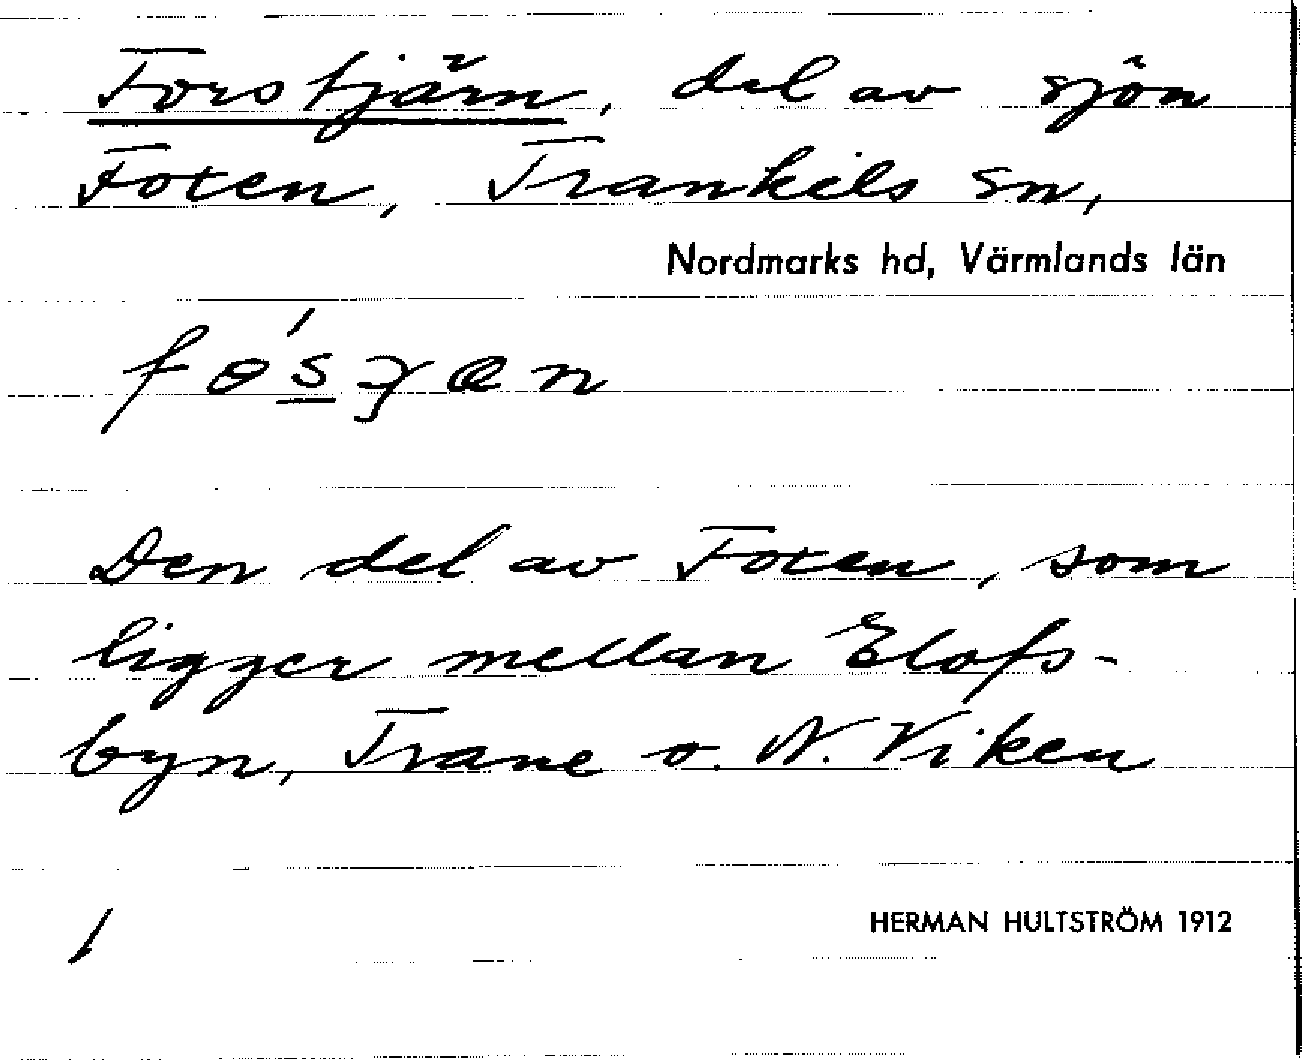 Forstjärn, del av sjön
Foxen, Trankils sn,
Nordmarks hd, Värmlands län
Den del av Foxen, som
ligger mellan Elofs-
byn, Trane o. N. Viken
HERMAN HULTSTRÖM 1912